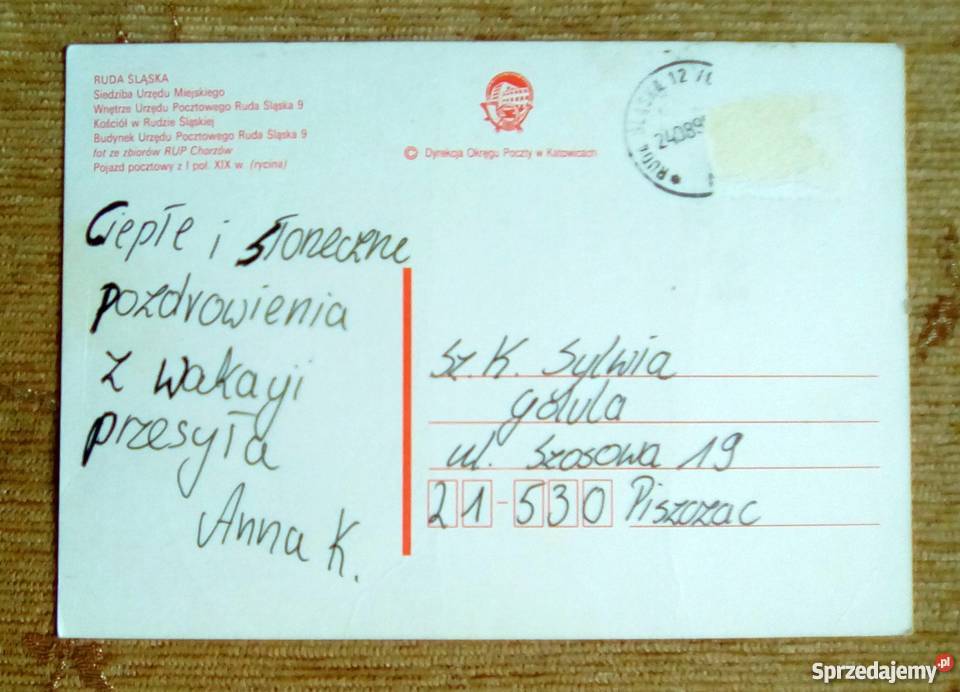 RUDA ŚLĄSKA
Siedziba Urzędu Miejskiego
Wnętrze Urzędu Pocztowego Ruda Śląska 9
Kościół w Rudzie Śląskiej
Budynek Urzędu Pocztowego Ruda Śląska 9
fot ze zbiorów RUP Chorzów
Pojazd pocztowy z I poł. XIX w. (rycina)
© Dyrekcja Okręgu Poczty w Katowicach
RUDA ŚLĄSKA 12
24.08.9
Ciepłe i słoneczne
pozdrowienia
z wakayi
przesyła
Anna K.
Sz. K. Sylwia
ul. Szosowa 19
21-530 Piszczac
Sprzedajemy.pl